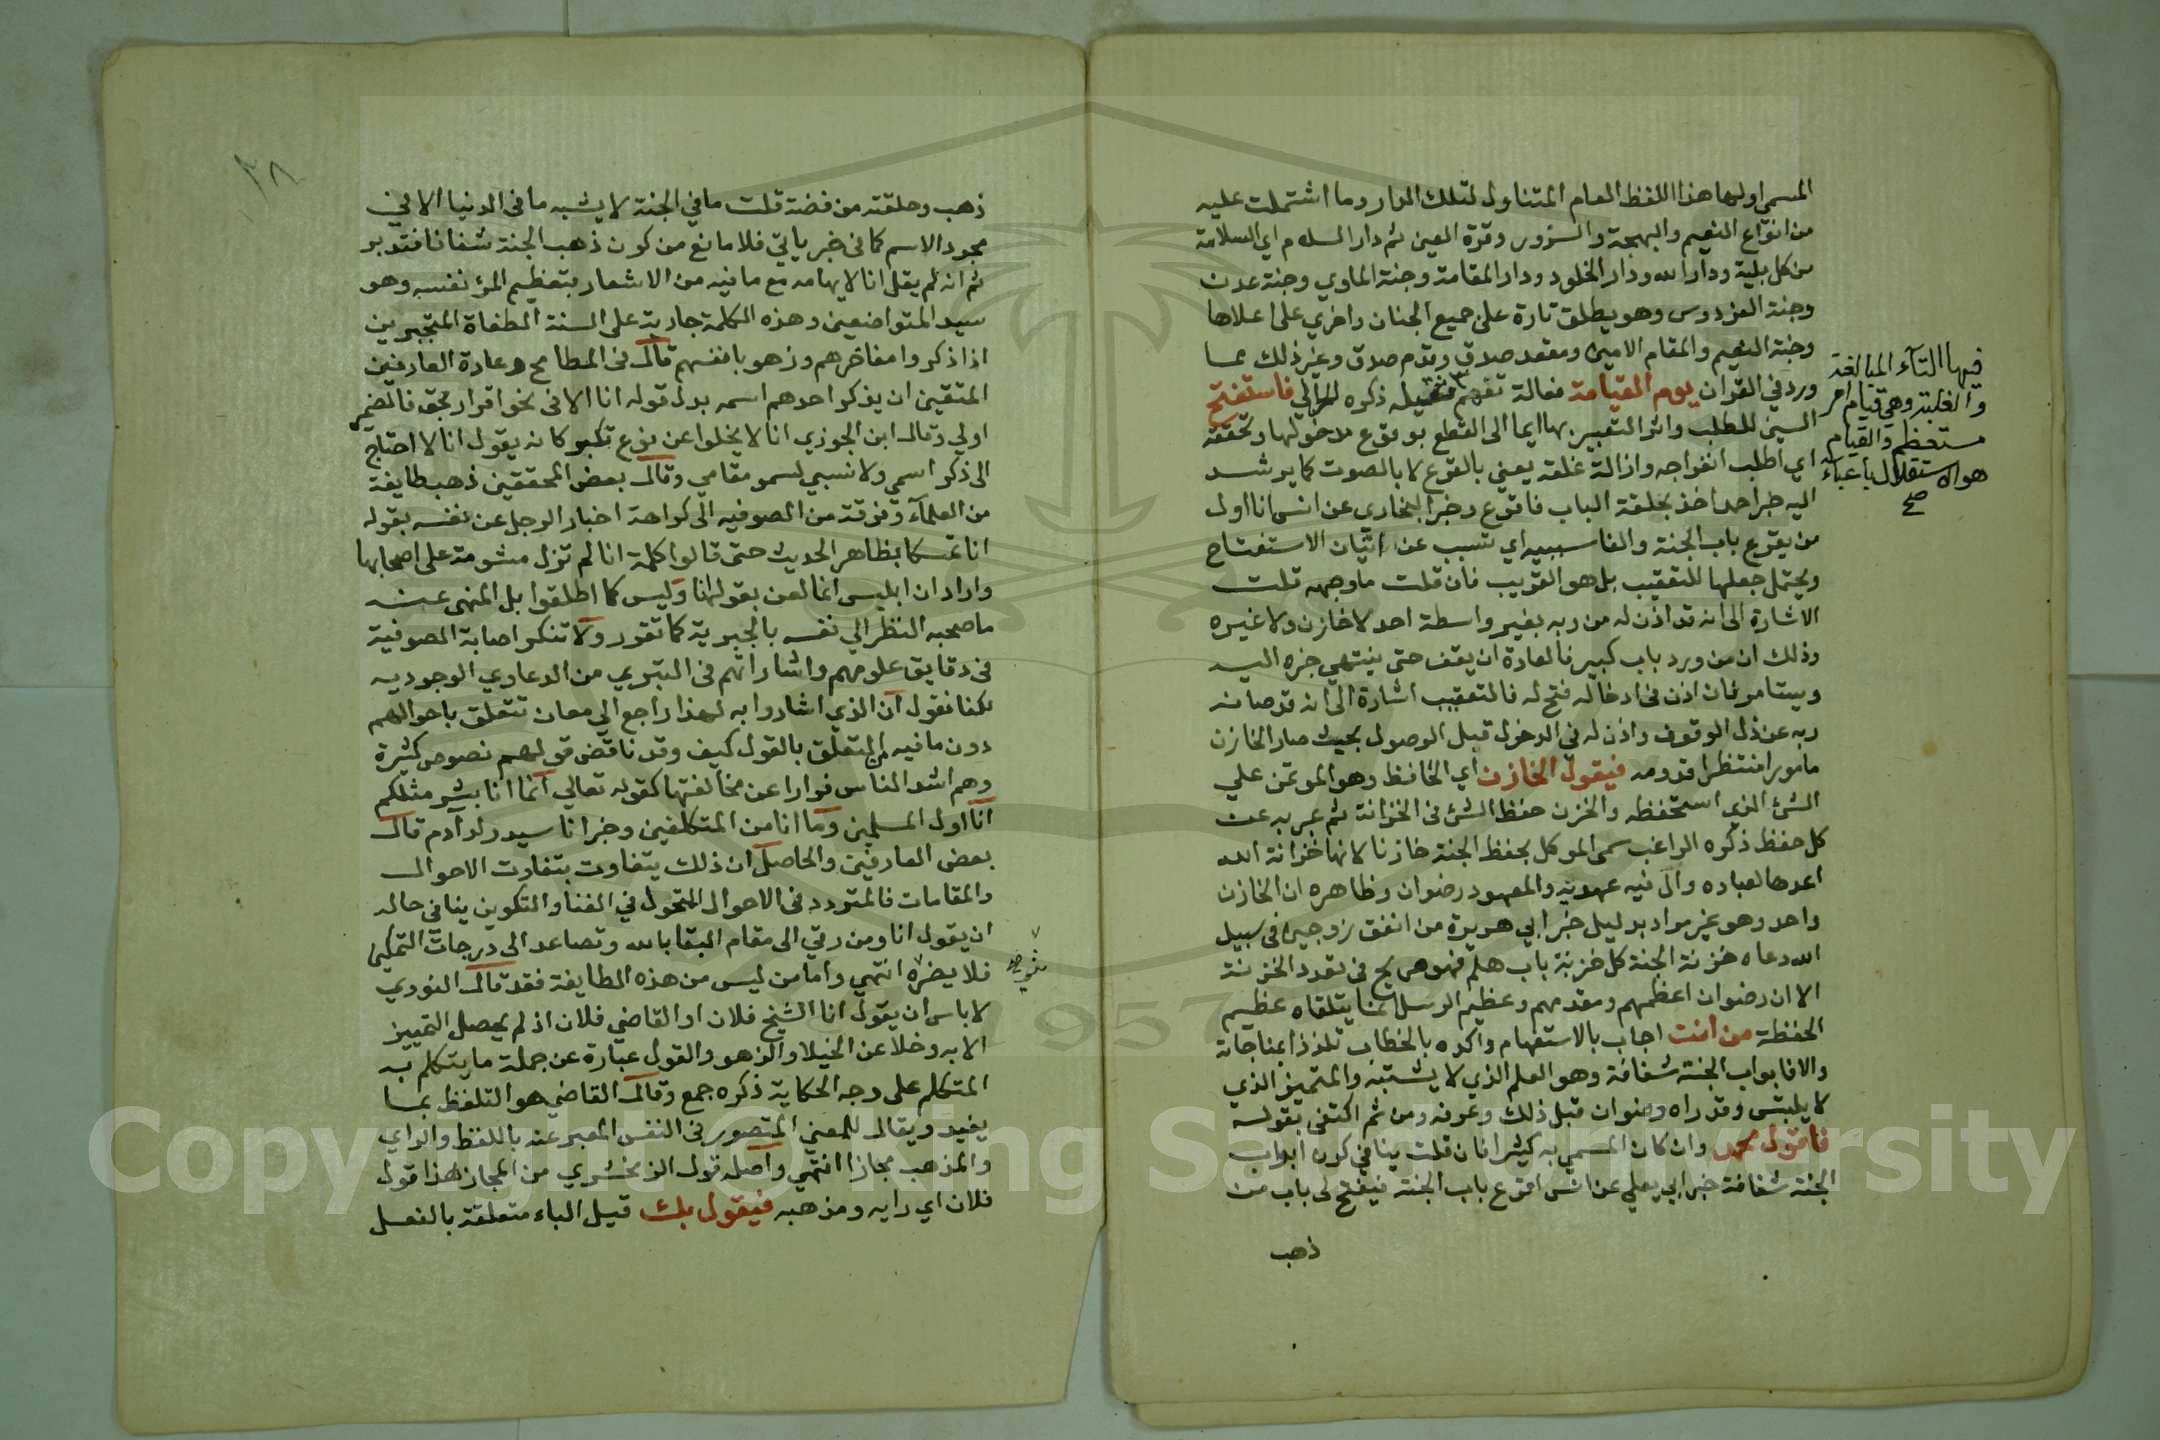 المسمى اولها هذا اللفظ العام المتناول لتلك الدار وما اشتملت عليه
من انواع النعيم والبهجة والسرور وقرة العين ثم دار السلام اي السلامة
من كل بلية ودار الله ودار الخلود ودار المقامة وجنة الماوي وجنة عدن
وجنة الفردوس وهو يطلق تارة على جميع الجنان واخري على اعلاها
وجنة النعيم والمقام الامين ومقعد صدق وقدم صدق وغير ذلك مما
ورد في القران يوم القيامة فعالة تفهم ذكره الحرالي فاستفتح
السين للطلب واثر التعبير بها ايما الى القطع بوقوع مدخولها وتحققه
اي اطلب انفراجه وازالة غلقه يعني بالقرع لا بالصوت كما يرشد
اليه خبر احمد اخذ بحلقة الباب فاقرع وخبر البخاري عن انس انا اول
من يقرع باب الجنة والفا سببيه اي تسبب عن اتيان الاستفتاح
ويحتمل جعلها للتعقيب بل هو القريب فان قلت ما وجهه قلت
الاشارة الى انه قد اذن له من ربه بغير واسطة احد لا خازن ولا غيره
وذلك ان من ورد باب كبير فالعادة ان يقف حتى ينتهي خبره اليه
ويستامر فان اذن في ادخاله فتح له فالتعقيب اشارة الى انه قد صانه
ربه عن ذل الوقوف واذن له في الدخول قبل الوصول بحيث صار الخازن
مامورا منتظرا قدومه فيقول الخازن اي الحافظ وهو الموتمن علي
الشئ الذي استحفظه والخزن حفظ الشئ في الخزانة ثم عبر به عن
كل حفظ ذكره الراغب سمى الموكل بحفظ الجنة خازنا لانها خزانة الله
اعدها لعباده وال فيه عهدية والمعهود رضوان وظاهره ان الخازن
واحد وهو غير مراد بدليل خبر ابي هريرة من انفق زوجين في سبيل
الله دعاه خزنة الجنة كل خزنة باب هلم فهو صريح في تعدد الخزنة
الا ان رضوان اعظمهم ومقدمهم وعظيم الرسل انما يتلقاه عظيم
الحفظة من انت اجاب بالاستفهام واكده بالخطاب تلذذا بمناجاته
والا فابواب الجنة شفافة وهو العلم الذي لا يشتبه والمتميز الذي
لا يلتبس وقد راه رضوان قبل ذلك وعرفه ومن ثم اكتفى بقوله
فاقول محمد وان كان المسمي به كثيرا فان قلت ينافي كون ابواب
الجنة شفافة خبر ابي يعلي عن انس اقرع باب الجنة فيفتح لى باب من
ذهب
فيها التاء المبالغة
والغلبة وهي قيام امر
مستعظم والقيام
هو الاستقلال باعباء
صح
٣٨
ذهب وحلقته من فضة قلت ما في الجنة لا يشبه ما فى الدنيا الا في
مجرد الاسم كما فى خبر ياتي فلا مانع من كون ذهب الجنة شفافا فتدبر
ثم انه لم يقل انا لايهامه مع ما فيه من الاشعار بتعظيم المرء نفسه وهو
سيد المتواضعين وهذه الكلمة جارية على السنة الطغاة المتجبرين
اذا ذكروا مفاخرهم وزهو بانفسهم قال فى المطامح وعادة العارفين
المتقين ان يذكر احدهم اسمه بدل قوله انا الا فى نحو اقرار بحق فالضمير
اولي وقال ابن الجوزي انا لا يخلوا عن نوع تكبر كانه يقول انا لا احتاج
الى ذكر اسمي ولا نسبي لسمو مقامي وقال بعض المحققين ذهب طايفة
من العلماء وفرقة من الصوفيه الى كراهة اخبار الرجل عن نفسه بقوله
انا تمسكا بظاهر الحديث حتى قالوا كلمة انا لم تزل مشومة على اصحابها
واراد ان ابليس انما لعن بقوله انا وليس كما اطلقوا بل المنهى عنه
ما صحبه النظر الي نفسه بالخيرية كما تقرر ولا تنكر اصابة الصوفية
فى دقايق علومهم واشاراتهم فى التبري من الدعاوي الوجودية
لكنا نقول ان الذي اشاروا به لهذا راجع الي معان تتعلق باحوالهم
دون ما فيه المتعلق بالقول كيف وقد ناقض قولهم نصوص كثيرة
وهم اشد الناس فرارا عن مخالفتها كقوله تعالي انما انا بشر مثلكم
انا اول المسلمين وما انا من المتكلفين وخبر انا سيد ولد آدم قال
بعض العارفين والحاصل ان ذلك يتفاوت بتفاوت الاحوال
والمقامات فالمتردد فى الاحوال المتحول في الفنا والتكوين ينافي حاله
ان يقول انا ومن رقي الى مقام البقا بالله وتصاعد الى درجات التمكين
فلا يضره انتهي واما من ليس من هذه الطايفة فقد قال النووي
لا باس ان يقول انا الشيخ فلان او القاضي فلان اذ لم يحصل التمييز
الا به وخلا عن الخيلا والزهو والقول عبارة عن جملة ما يتكلم به
المتكلم على وجه الحكاية ذكره جمع وقال القاضي هو التلفظ بما
يفيد ويقال للمعني المتصور فى النفس المعبر عنه باللفظ والراي
والمذهب مجازا انتهي واصله قول الزمخشري من المجاز هذا قول
فلان اي رايه ومذهبه فيقول بك قيل الباء متعلقة بالفعل
Copyright © King Saud University
1957